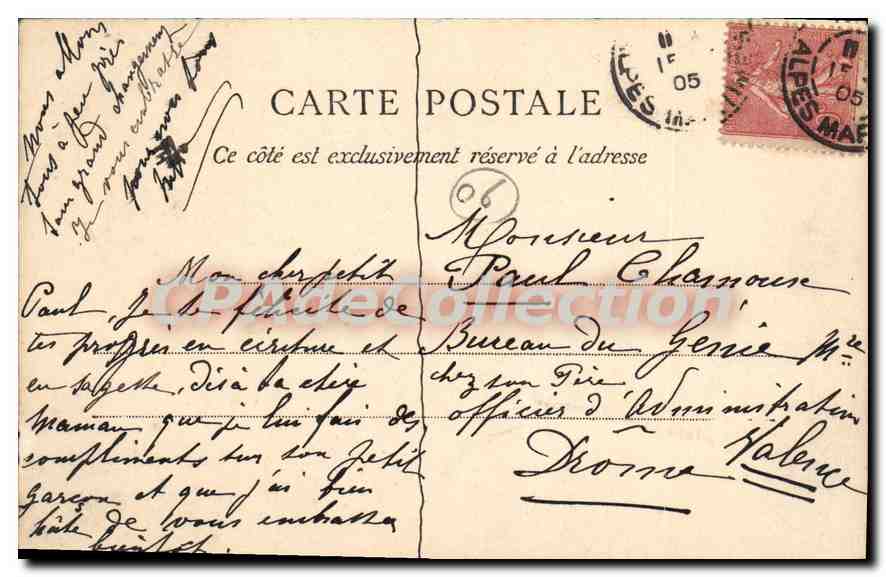 Nous allons
tous à peu près
sans grand changement
Je vous embrasse
pour nous tous
CARTE POSTALE
Ce côté est exclusivement réservé à l'adresse
06
15
05
ALPES MAR
15
05
ALPES MAR
Mon cher petit
Paul, je te félicite de
tes progrès en écriture et
en sagesse, dis à ta chère
Maman que je lui fais des
compliments sur son petit
garçon et que j'ai bien
hâte de vous embrasser
bientôt.
Monsieur
Paul Chamoux
Bureau du Génie Mre
chez son Père
officier d'Administration
Valence
Drôme
CPADeCollection